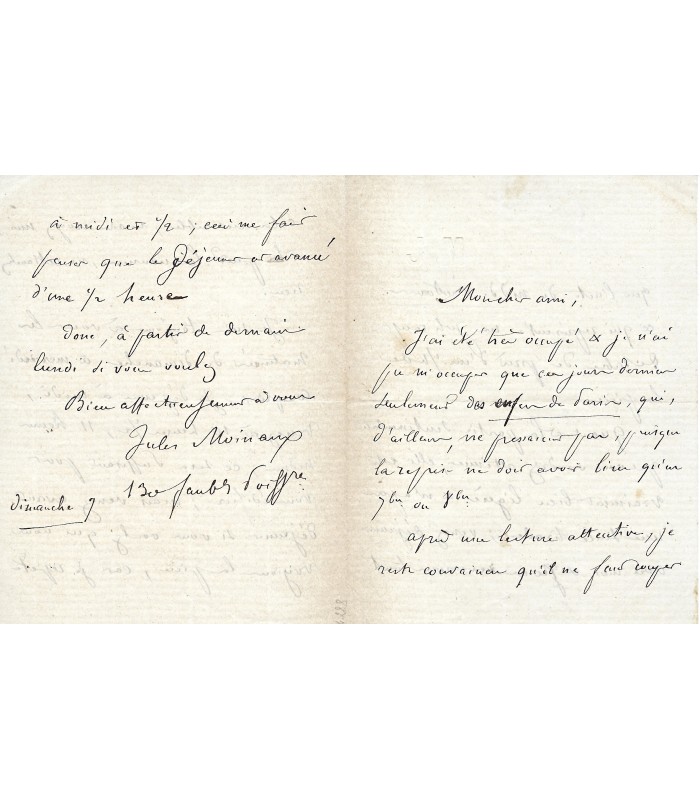 Mon cher ami,
J'ai été très occupé & je n'ai
pu m'occuper que ces jours derniers
seulement des enfers de Paris, qui,
d'ailleurs, ne pressaient pas, puisque
la reprise ne doit avoir lieu qu'en
7bre ou 8bre
après une lecture attentive, je
reste convaincu qu'il ne faut couper
à midi et 1/2 ; ceci me fait
penser que le déjeuner est avancé
d'une 1/2 heure
donc, à partir de demain
lundi si vous voulez
Bien affectueusement à vous
Jules Moinaux
130 faubg Poissre
dimanche 7